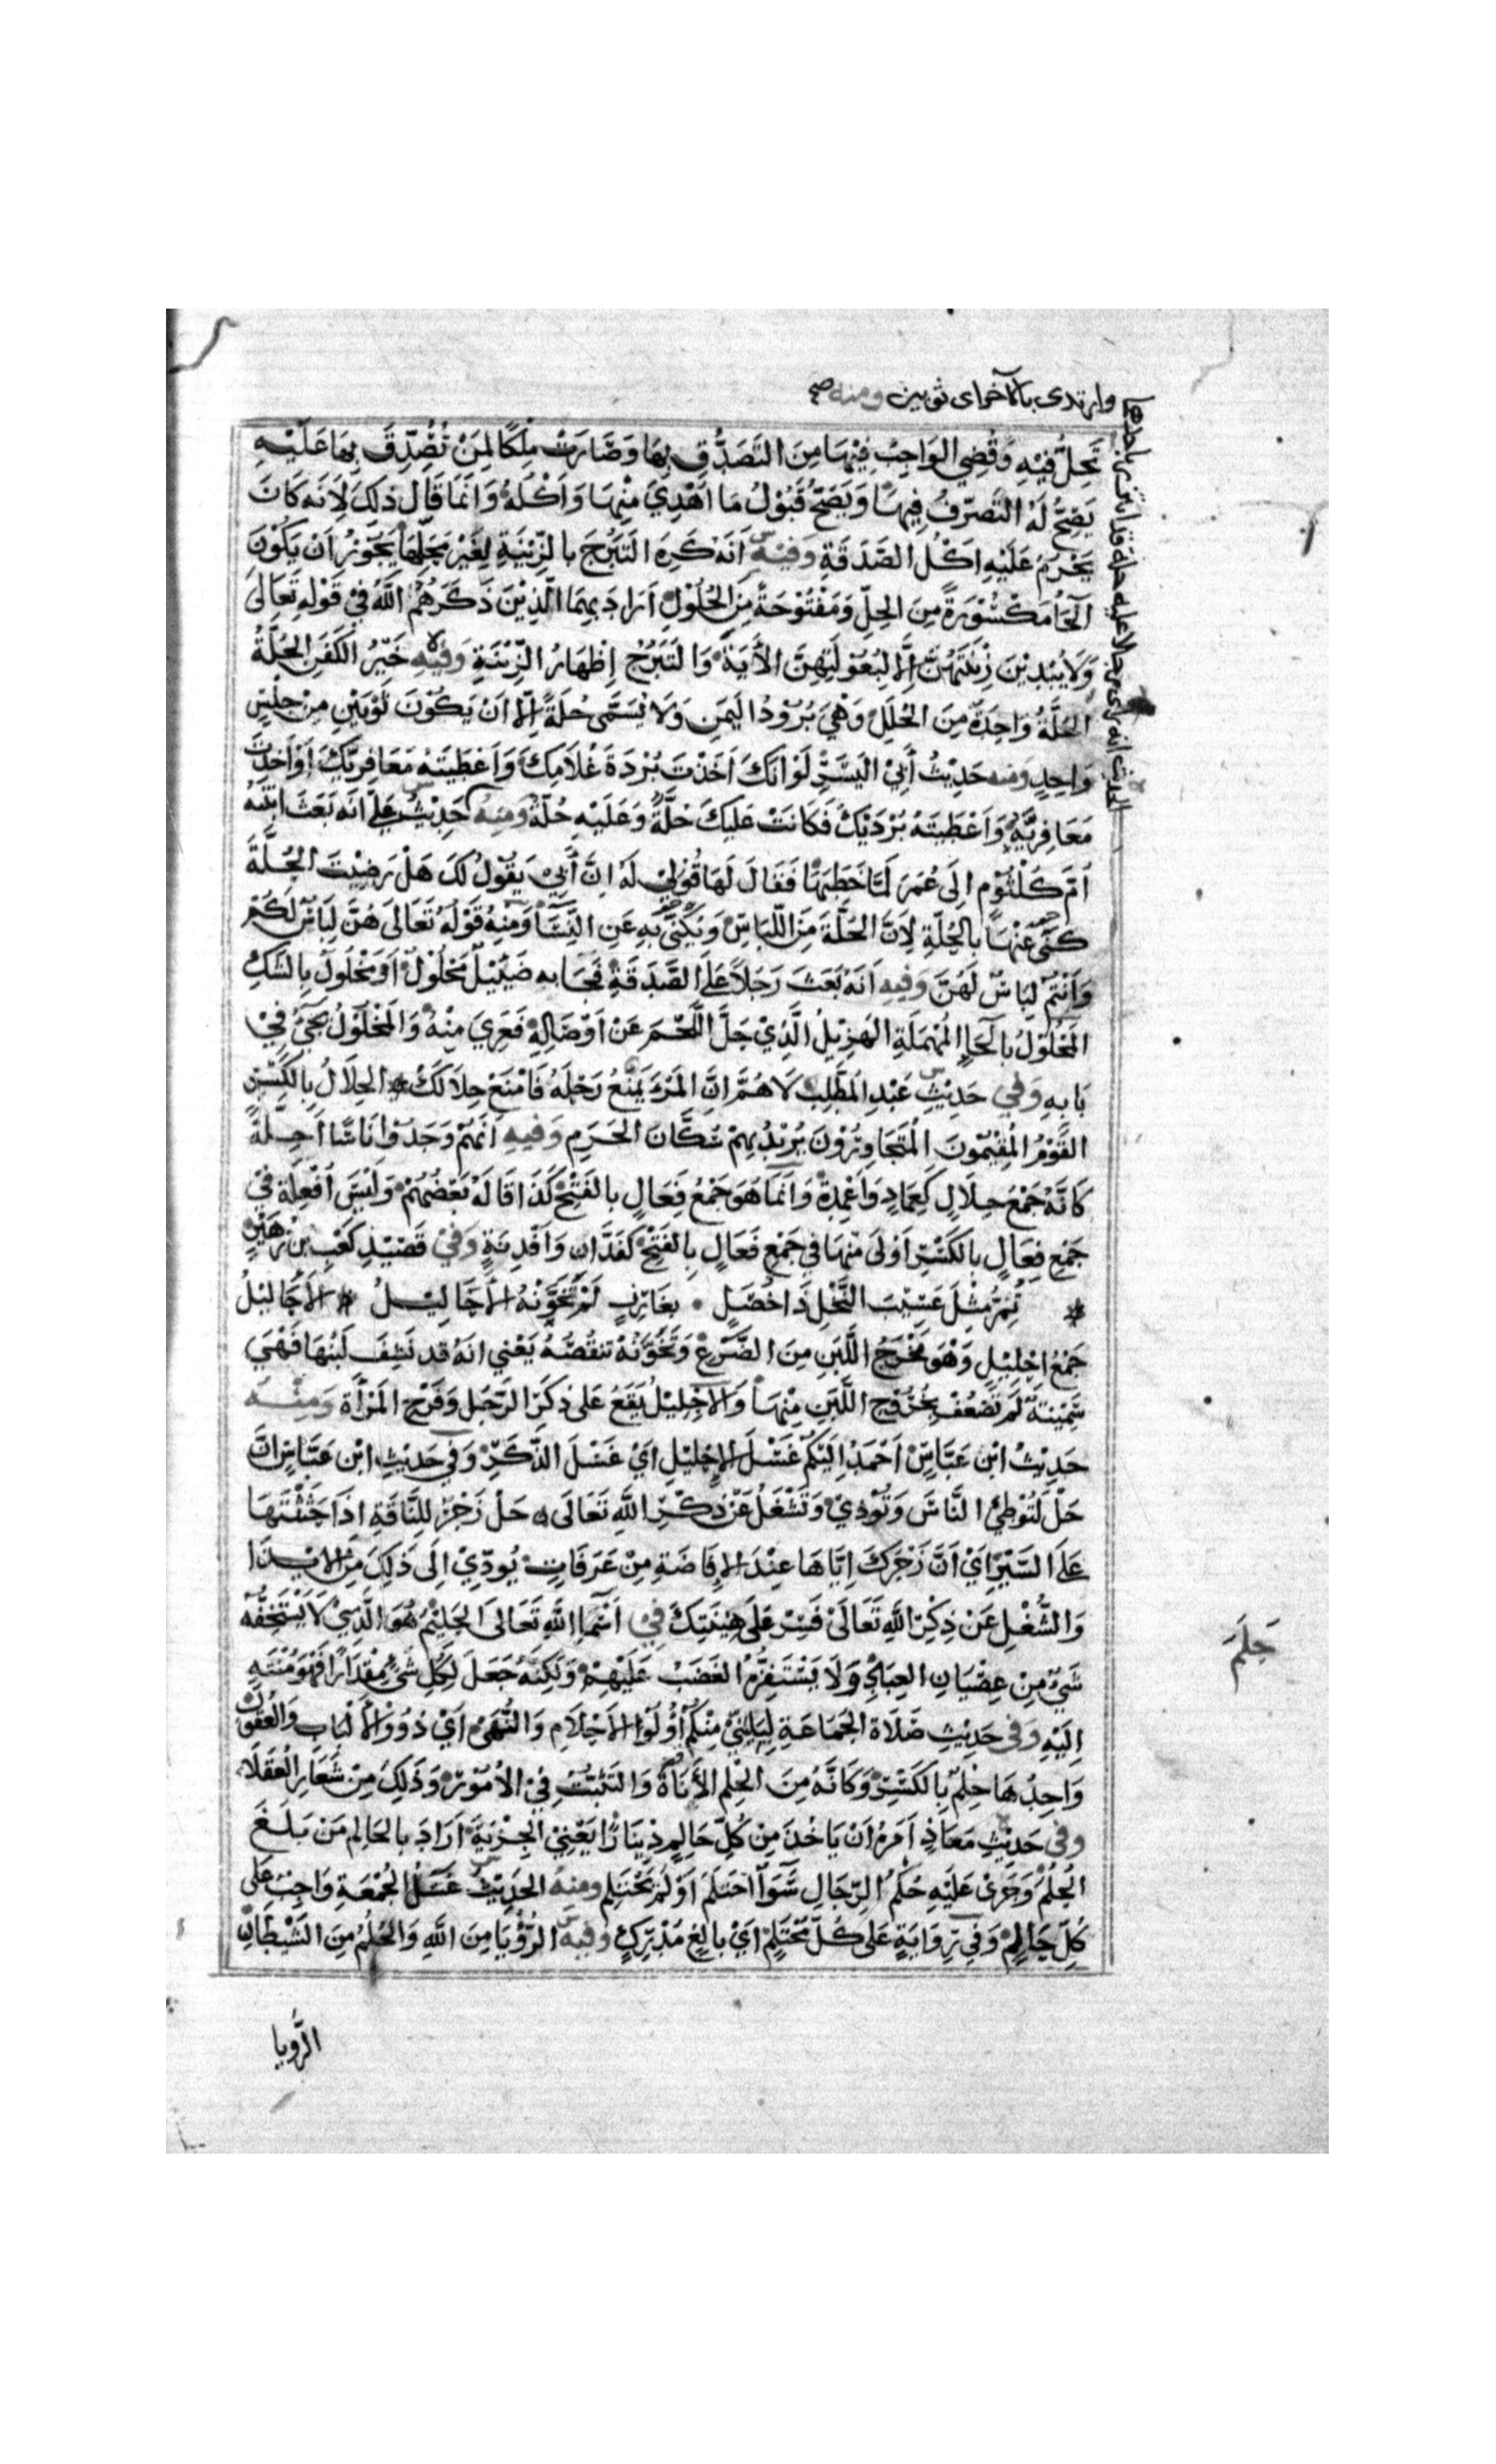 الحديث انه رأى رجلا عليه حلة قد ائتزر باحدها
وارتدى بالآخر اى ثوبين ومنه صح
تَحِلُّ فِيْهِ وَقُضِي الوَاجِبُ فِيْهَا مِنَ التَصَدُّقِ بِهَا وَصَارَتْ مِلْكًا لِمَنْ تُصُدِّقَ بِهَا عَلَيْهِ
يَصِحُّ لَهُ التَصَرّفُ فِيهَا وَيَصِحّ قَبُوْلُ مَا اُهْدِيَ مِنْهَا وَاَكْلُهُ وَانَمَا قَالَ ذلِكَ لِاَنَه كَانَ
يَحْرُمُ عَلَيْهِ اَكْلُ الصَّدَقَةِ وَفِيْهِ اَنَه كَرِهَ التَبَرُّجَ بالزِّيْنَةِ لِغَيْر مَحِلِّهَا يَجُوْزُ اَنْ يَكُوْنَ
الحَا مَكْسُوْرَةً مِنَ الحِلّ وَمَفْتُوْحَةً مِنَ الحُلُوْلِ اَرَادَ بِهِمَا الَّذِيْنَ ذَكَرَهُم اللهُ فِيْ قَوْلِهِ تَعَالَى
وَلَا يُبْدِيْنَ زِيْنَتَهُنَّ اِلَّا لِبُعُوْلَتِهِنَّ الأَيَةَ وَالتَبَرُّجُ اِظْهَارُ الزِّيْنَةِ وَفِيْهِ خَيْرُ الكَفَنِ الحُلَّةُ
الحُلَّةُ وَاحِدَةٌ مِنَ الحُلَلِ وَهْيَ بُرُوْدُ اليَمَنِ وَلَا تُسَمَّى حُلَةً اِلَّا اَنْ يَكُوْنَ ثَوْبَيْنِ مِنْ جِنْسٍ
وَاحِدٍ ومنه حَدِيْثُ أَبِيْ اليَسَرِ لَوْ انَكَ اَخَذْتَ بُرْدَةَ غُلَامِكَ وَاَعْطَيْتَهُ مَعَافِرِيَّكَ اَوْ اَخَذْتَ
مَعَافِرِيَّهُ وَاَعْطَيْتَهُ بُرْدَتَكَ فَكَانَتْ عَلَيْكَ حُلَّةٌ وَعَلَيْهِ حُلّةٌ وَمِنْهُ حَدِيْثُ عَلِيّ انَه بَعَثَ ابْنَتَهُ
اُمَّ كَلْثُوْمٍ اِلَى عُمَرَ لَمَّا خَطَبَهَا فَقَالَ لَهَا قُوْلِيْ لَهُ اِنَّ أَبِيْ يَقُوْلُ لَكَ هَلْ رَضِيْتَ الحُلَّةَ
كَنَى عَنْهَا بِالحُلَّةِ لِاَنَّ الحُلَّةَ مِنَ اللّبَاسِ وَيُكْنَى بِهِ عَنِ النِّسَا وَمِنْهُ قَوْلُهُ تَعَالَى هُنَّ لِبَاسٌ لَكُمْ
وَاَنْتُمْ لِبَاسٌ لَهُنَّ وَفِيهِ اَنَهُ بَعَثَ رَجُلاً عَلَى الصَّدَقَةِ فَجَا بِه فَصِيْلٍ مَحْلُوْلٍ اَوْ مَخْلُولٍ بِالشَكِّ
المَحْلُوْلُ بِالحَا المُهْمَلَةِ الهَزِيْلُ الَّذِيْ حَلَّ اللَّحْمَ عَنْ اَوْصَالِهِ فَعَرِيَ مِنْهُ وَالمَخْلُوْلُ يَجِيْ فِيْ
بَابِهِ وَفِي حَدِيْثِ عَبْدِ المُطَّلِب لَاهُمَّ اِنَّ المَرْءَ يَمْنَعُ رَحْلَهُ فَامْنَعْ حِلَالَكْ الحِلَالُ بِالكَسْرِ
القَوْمُ المُقِيْمُونَ المُتَجَاوِرُوْنَ يُرِيْدُ بِهِمْ سُكَّانَ الحَرَمِ وَفِيهِ اَنَهُمْ وَجَدُوْا نَاسًا اَحِلَّةً
كَانَّهُ جَمْعُ حِلَالٍ كَعِمَادٍ وَاَعْمِدَةٍ وَاَنَمَا هُوَ جَمْعُ فَعَالٍ بالفَتْحِ كَذَا قَالَهُ بَعْضُهُمْ وَلَيْسَ اَفْعِلَةٌ فِي
جَمْعِ فِعَالٍ بالكَسْرِ اَوْلَى مِنْهَا فِي جَمْعِ فَعَالٍ بِالفَتْحِ كَفَدَّانٍ وَاَفْدِنَةٍ وَفِيْ قَصِيْدِ كَعْبِ بْنِ زُهَيْرٍ
تُمِرُّ مِثْلَ عَسِيْبِ النَّخْلِ ذَا خُصَلٍ • بغَارِبٍ لَمْ تَخَوَّنْهُ الأَحَالِيْلُ الأَحَالِيْلُ
جَمْعُ اِحْلِيْلٍ وَهْوَ مَخْرَجُ اللَّبَنِ مِنَ الضَّرْعِ وَتَخَوَّنُهُ تَنَقُّصُهُ يَعْنِي انَهُ قد نَشِفَ لَبَنُهَا فَهْيَ
سَمِيْنَةٌ لَمْ تَضْعُفْ بِخُرُوْجِ اللَّبَنِ مِنْهَا وَالاِحْلِيْلُ يَقَعُ عَلَى ذَكَرِ الرَّجُلِ وَفَرْجِ المَرْأَةِ وَمِنْهُ
حَدِيْثُ ابْنِ عَبَّاسٍ اَحْمَدُ اِلَيْكُمْ غَسْلَ الاِحْلِيْلِ اَيْ غَسْلَ الذَّكَرِ وَفِي حَدِيْثِ ابْنِ عَبَّاسٍ اِنَّ
حَلْ لَتُوْطِئُ النَّاسَ وَتُؤْذِيْ وَتَشْغَلُ عَنْ ذِكْرِ اللهِ تَعَالَى ه حَلْ زَجْرٌ لِلنَّاقَةِ اِذَا حَثَثْتَهَا
عَلَى السَيْرِ اَيْ اَنَّ زَجْرَكَ اِيَّاهَا عِنْدَ الاِفَاضَةِ مِنْ عَرَفَاتٍ يُودِّيْ اِلَى ذَلِكَ مِنَ الايْذَا
وَالشُّغْلِ عَنْ ذِكْرِ اللهِ تَعَالَى فَسِرْ عَلَى هِيْنَتِكَ فِيْ اَسْمَا اللهِ تَعَالَى الحَلِيْمُ هُوَ الَّذِيْ لَا يَسْتَخِفُّهُ
حَلَمَ
شَيْ مِنْ عِصْيَانِ العِبَادِ وَلَا يَسْتَفِزُّهُ الغَضَبُ عَلَيْهِمْ وَلَكِنَّهُ جَعَلَ لِكُلِّ شَيْ مِقْدَارًا فَهْوَ مُنْتَهٍ
اِلَيْهِ وَفى حَدِيْثِ صَلَاةِ الجَمَاعَةِ لِيَلِيَنِّيْ مِنْكُمْ أُوْلُوْا الاَحْلَامِ وَالنُّهَى اَيْ ذَوُوْا الأَلْبَابِ وَالعُقُولِ
وَاحِدُهَا حِلْمٌ بِالكَسْرِ وَكَانَّهُ مِنَ الحِلْمِ الأَنَاةُ وَالتَثَبُّتُ فِيْ الاُمُوْرِ وَذَلِكَ مِنْ شَعَارِ العُقَلَا
وفى حَدِيْثِ مَعَاذٍ اَمَرَهُ اَنْ يَاخُذَ مِنْ كُلِّ حَالِمٍ دِيْنَارًا يَعْنِيْ الجِزْيَةَ اَرَادَ بالحَالِم مَنْ بَلَغَ
الحُلُمَ وَجَرَى عَلَيْهِ حُكْمُ الرِّجَالِ سَوَآ احْتَلَمَ اَوْ لَمْ يَحْتَلِم ومِنْهُ الحَدِيْثُ غُسْلُ الجُمْعَةِ وَاجِبٌ عَلَى
كُلِّ حَالِمٍ وَفِي رِوَايَةٍ عَلَى كُلّ مُحْتَلِمٍ اَيْ بَالِغٍ مُدْرِكٍ وفِيهِ الرُّؤْيَا مِنَ اللهِ وَالحُلْمُ مِنَ الشَّيْطَانِ
الرُّويا